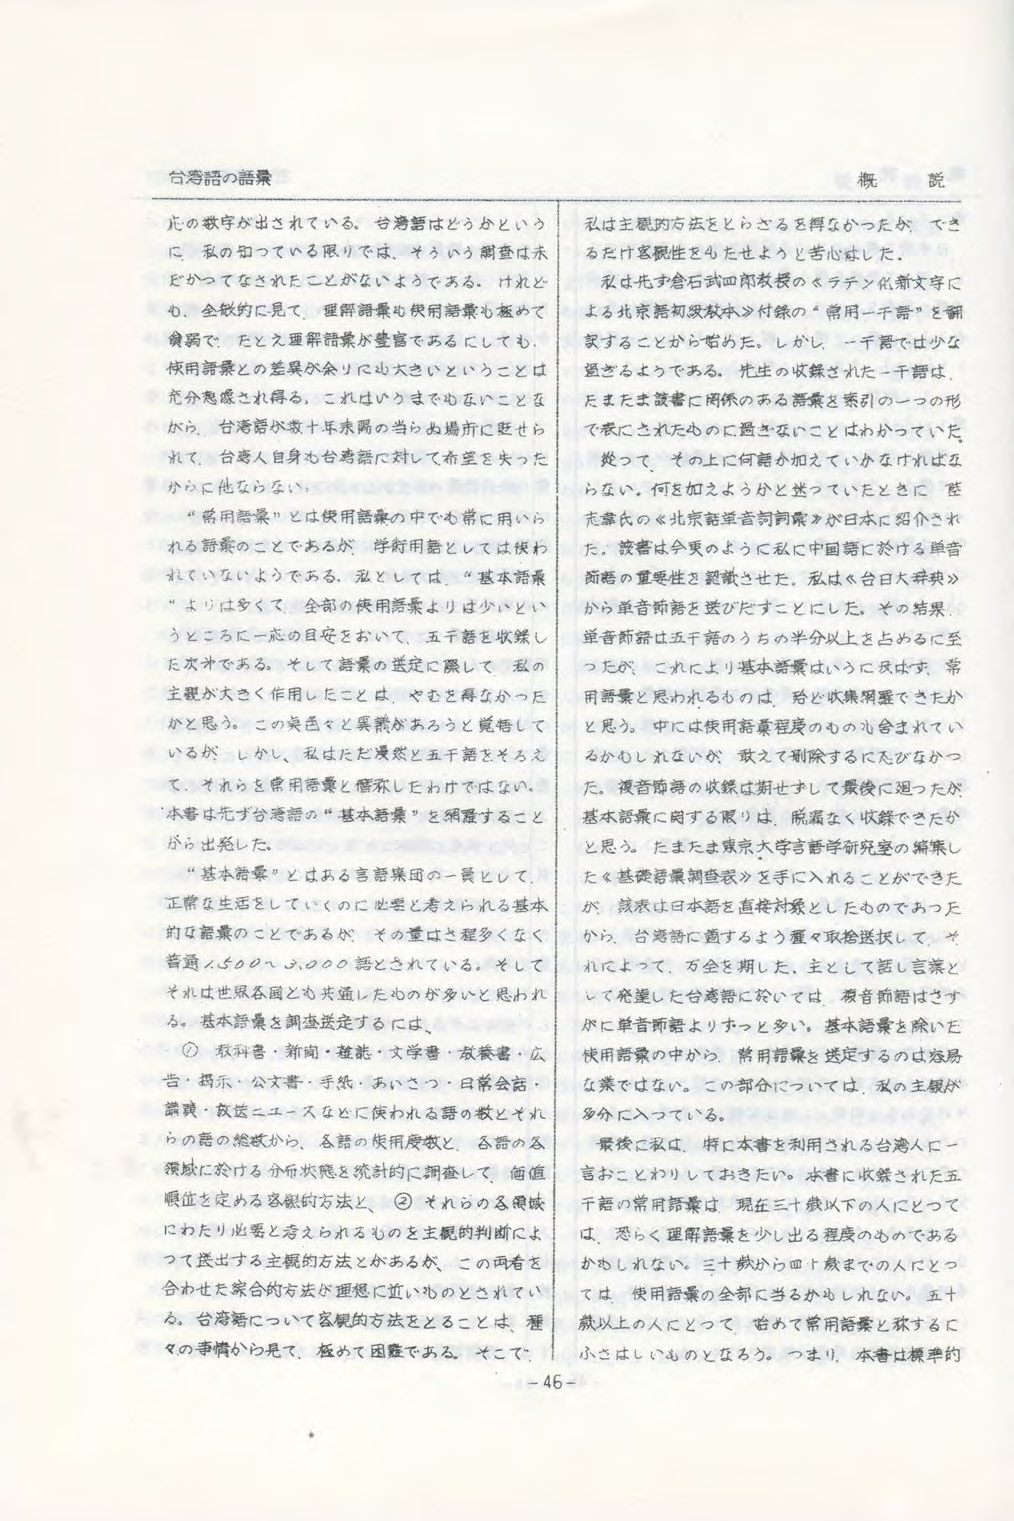 台湾語の語彙
概　　説
応の数字が出されている。台湾語はどうかという
に、私の知っている限りでは、そういう調査は未
だかつてなされたことがないようである。けれど
も、全般的に見て、理解語彙も使用語彙も極めて
貧弱で、たとえ理解語彙が豊富であるにしても、
使用語彙との差異が余りにも大きいということは
充分想像され得る。これはいうまでもないことな
がら、台湾語が数十年来陽の当らぬ場所に貶せら
れて、台湾人自身も台湾語に対して希望を失った
からに他ならない。
“常用語彙”とは使用語彙の中でも常に用いら
れる語彙のことであるが、学術用語としては使わ
れていないようである。私としては、“基本語彙
”よりは多くて、全部の使用語彙よりは少いとい
うところに一応の目安をおいて、五千語を収録し
た次第である。そして語彙の選定に際して、私の
主観が大きく作用したことは、やむを得なかった
かと思う。この点色々と異議があろうと覚悟して
いるが、しかし、私はただ漫然と五千語をそろえ
て、それらを常用語彙と僭称したわけではない。
本書は先ず台湾語の“基本語彙”を網羅すること
から出発した。
“基本語彙”とはある言語集団の一員として、
正常な生活をしていくのに必要と考えられる基本
的な語彙のことであるが、その量はさ程多くなく
普通1.500〜3.000語とされている。そして
それは世界各国とも共通したものが多いと思われ
る。基本語彙を調査選定するには、
① 教科書・新聞・雑誌・文学書・教養書・広
告・掲示・公文書・手紙・あいさつ・日常会話・
講演・放送ニュースなどに使われる語の数とそれ
らの語の総数から、各語の使用度数と、各語の各
領域に於ける分布状態を統計的に調査して、価値
順位を定める客観的方法と、② それらの各領域
にわたり必要と考えられるものを主観的判断によ
って選出する主観的方法とがあるが、この両者を
合わせた綜合的方法が理想に近いものとされてい
る。台湾語について客観的方法をとることは、種
々の事情から見て、極めて困難である。そこで、
私は主観的方法をとらざるを得なかったが、でき
るだけ客観性をもたせようと苦心はした。
私は先ず倉石武四郎教授の≪ラテン化新文字に
よる北京語初級教本≫付録の“常用一千語”を翻
訳することから始めた。しかし、一千語では少な
過ぎるようである。先生の収録された一千語は、
たまたま該書に関係のある語彙を索引の一つの形
で表にされたものに過ぎないことはわかっていた。
従って、その上に何語か加えていかなければな
らない。何を加えようかと迷っていたときに、陸
志韋氏の≪北京話単音詞詞彙≫が日本に紹介され
た。該書は今更のように私に中国語に於ける単音
節語の重要性を認識させた。私は≪台日大辞典≫
から単音節語を選びだすことにした。その結果、
単音節語は五千語のうちの半分以上を占めるに至
ったが、これにより基本語彙はいうに及ばず、常
用語彙と思われるものは、殆ど収集網羅できたか
と思う。中には使用語彙程度のものも含まれてい
るかもしれないが、敢えて削除するにたびなかっ
た。複音節語の収録は期せずして最後に廻ったが、
基本語彙に関する限りは、脱漏なく収録できたか
と思う。たまたま東京大学言語学研究室の編集し
た≪基礎語彙調査表≫を手に入れることができた
が、該表は日本語を直接対象としたものであった
から、台湾語に適するよう種々取捨選択して、そ
れによって、万全を期した。主として話し言葉と
して発達した台湾語に於いては、複音節語はさす
がに単音節語よりずっと多い。基本語彙を除いた
使用語彙の中から、常用語彙を選定するのは容易
な業ではない。この部分については、私の主観が
多分に入っている。
最後に私は、特に本書を利用される台湾人に一
言おことわりしておきたい。本書に収録された五
千語の常用語彙は、現在三十歳以下の人にとって
は、恐らく理解語彙を少し出る程度のものである
かもしれない。三十歳から四十歳までの人にとっ
ては、使用語彙の全部に当るかもしれない。五十
歳以上の人にとって、始めて常用語彙と称するに
ふさはしいものとなろう。つまり、本書は標準的
-46-